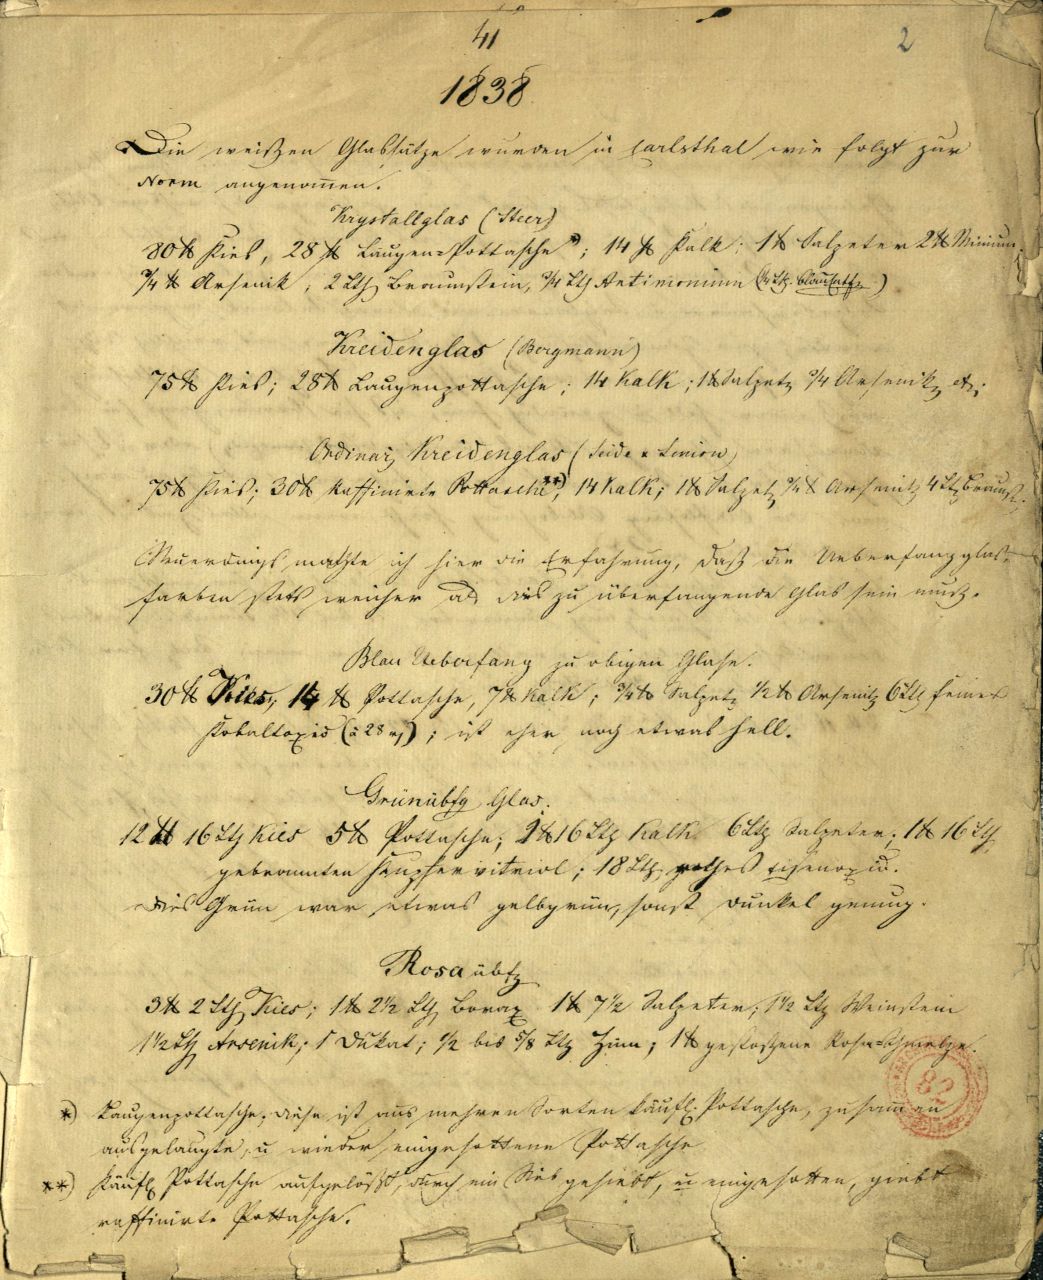 41
2
1838
Die weißen Glassätze wurden in Carlsthal wie folgt zur
Norm angenommen.
Krystallglas (Steer)
80 ℔ Kies, 28 ℔ Laugen=Pottasche *) ; 14 ℔ Kalk; 1 ℔ Salpeter 2 ℔ Minium.
¾ ℔ Arsenik, 2 Lth Braunstein, ¾ Lth Antimonium (¾ Lth.
Kreidenglas (Bergmann)
75 ℔ Kies; 28 ℔ Laugenpottasche; 14 Kalk; 1 ℔ Salpet. ¾ Arsenik etc.
Ordinair Kreidenglas (Seide &
75 ℔ Kies; 30 ℔ Raffinirte Pottasche **), 14 Kalk; 1 ℔ Salpet. ¾ ℔ Arsenik 4 Lth Braunst.
Neuerdings machte ich hier die Erfahrung, daß die Ueberfangglas-
farben stets weicher als das zu überfangende Glas sein muß.
Blau Ueberfang zu obigem Glase.
30 ℔ Kies, 14 ℔ Pottasche, 7 ℔ Kalk; ¾ ℔ Salpet. ½ ℔ Arsenik 6 Lth feines
Kobaltoxid (à 28 ; ist eher noch etwas hell.
Grünübfg Glas.
12 ℔ 16 Lth Kies 5 ℔ Pottasche; 2 ℔ 16 Lth Kalk 6 Lth Salpeter; 1 ℔ 16 Lth
gebrannten Kupfervitriol; 18 Lth rothes Eisenoxid.
Dies Grün war etwas gelbgrün, sonst dunkel genug.
Rosa übfg
3 ℔ 2 Lth Kies; 1 ℔ 2½ Lth Borax 1 ℔ 7½ Salpeter; 1½ Lth Weinstein
1½ Lth Arsenik; 1 Dukat; ½ bis ⅝ Lth Zinn; 1 ℔ gestoßene Rosa=Schmelze.
82
*) Laugenpottasche; diese ist aus mehren Sorten käufl. Pottasche, zusamen
ausgelaugte, u wieder eingesottene Pottasche
**) Käufl Pottasche aufgelößt, durch ein Sieb gesiebt, u eingesotten, giebt
raffinirte Pottasche.